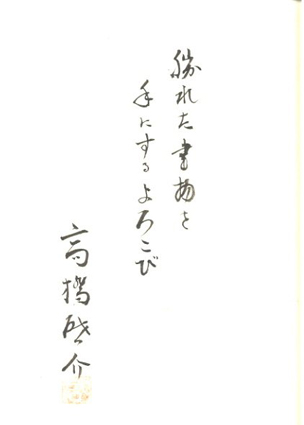 勝れた書物を
手にするよろこび
高橋啓介